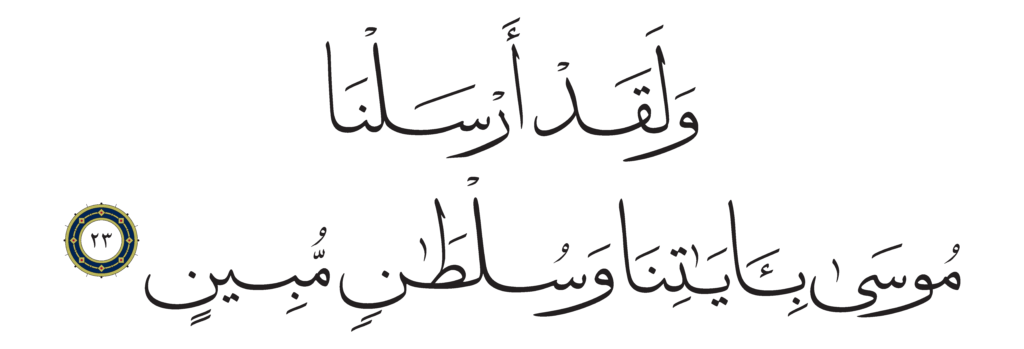 وَلَقَدْ أَرْسَلْنَا
مُوسَىٰ بِـَٔايَـٰتِنَا وَسُلْطَـٰنٍ مُّبِينٍ ٢٣